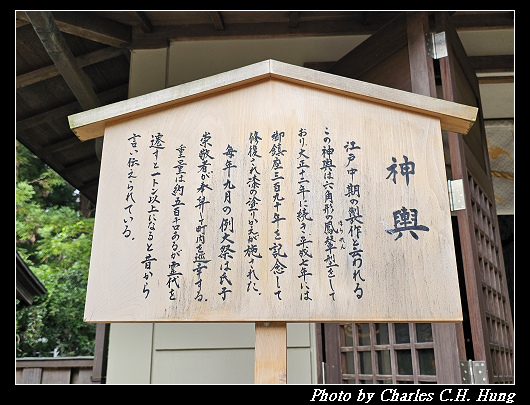 神輿
江戸中期の製作と云われる
この神輿は六角形の鳳輦型をして
おり、大正十二年に続き、平成七年には
御鎮座三百九十年を記念して
修復され漆の塗りかえが施された。
毎年九月の例大祭は氏子
崇敬者が奉舁し町内を巡幸する。
重量は約五百キロあるが霊代を
遷すと一トン以上になると昔から
言い伝えられている。
Photo by Charles C.H. Hung